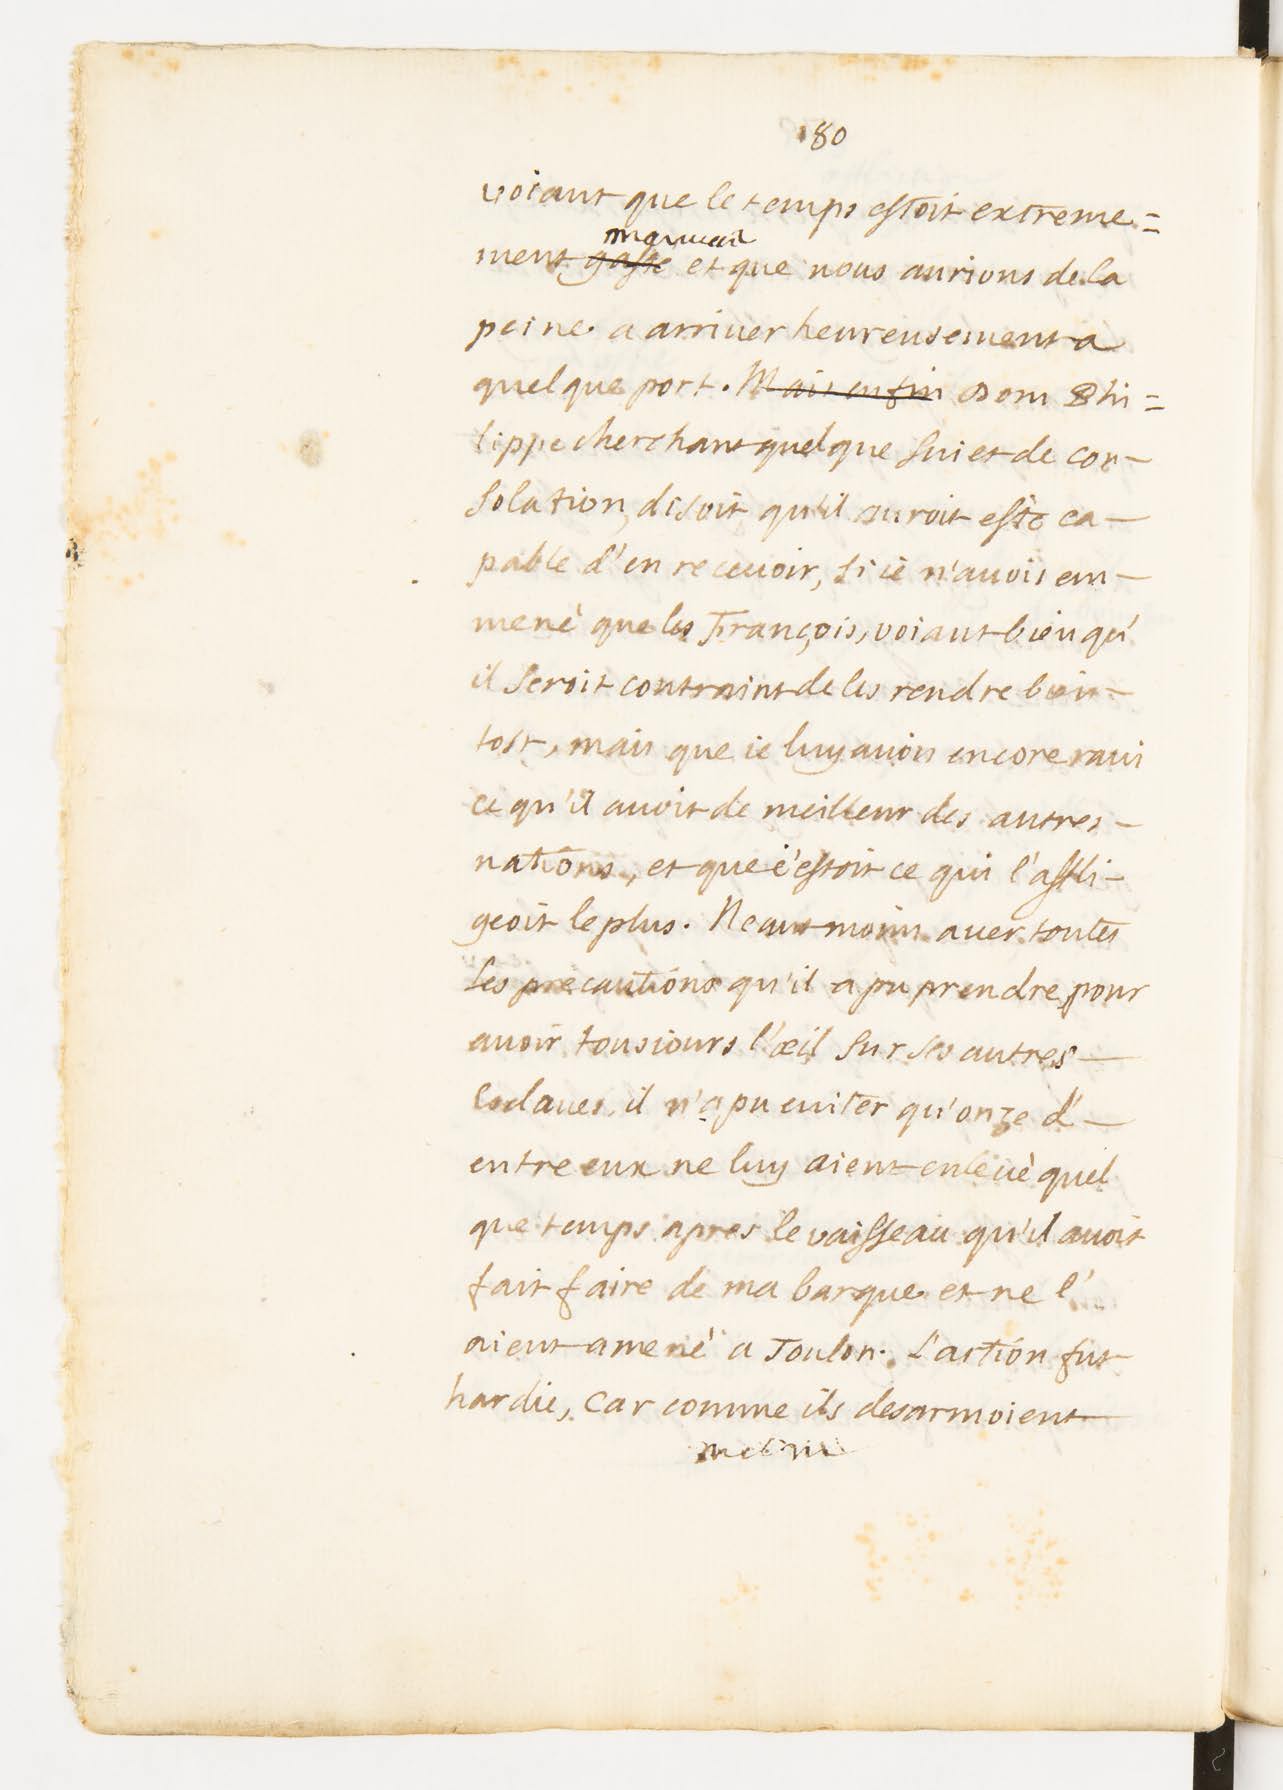 180
voiant que le temps estoit extreme=
mauvais
ment gasté et que nous aurions de la
peine a arriver heureusement a
quelque port. Mais enfin Dom Phi=
lippe cherchant quelque suiet de con-
solation, disoit qu'il auroit esté ca-
pable d'en recevoir, si ie n'avois em-
mené que les François, voiant bien qu'
il seroit contraint de les rendre bien-
tost, mais que ie luy avois encore ravi
ce qu'il avoit de meilleur des autres-
nations, et que c'estoit ce qui l'affli-
geoit le plus. Neantmoins avec toutes
les precautions qu'il a pu prendre pour
avoir tousiours l'œil sur ses autres-
Esclaves, il n'a pu eviter qu'onze d'-
entre eux ne luy aient enlevé quel
que temps apres le vaisseau qu'il avoit
fait faire de ma barque et ne l'
aient amené a Toulon. L'action fut
hardie, car comme ils desarmoient